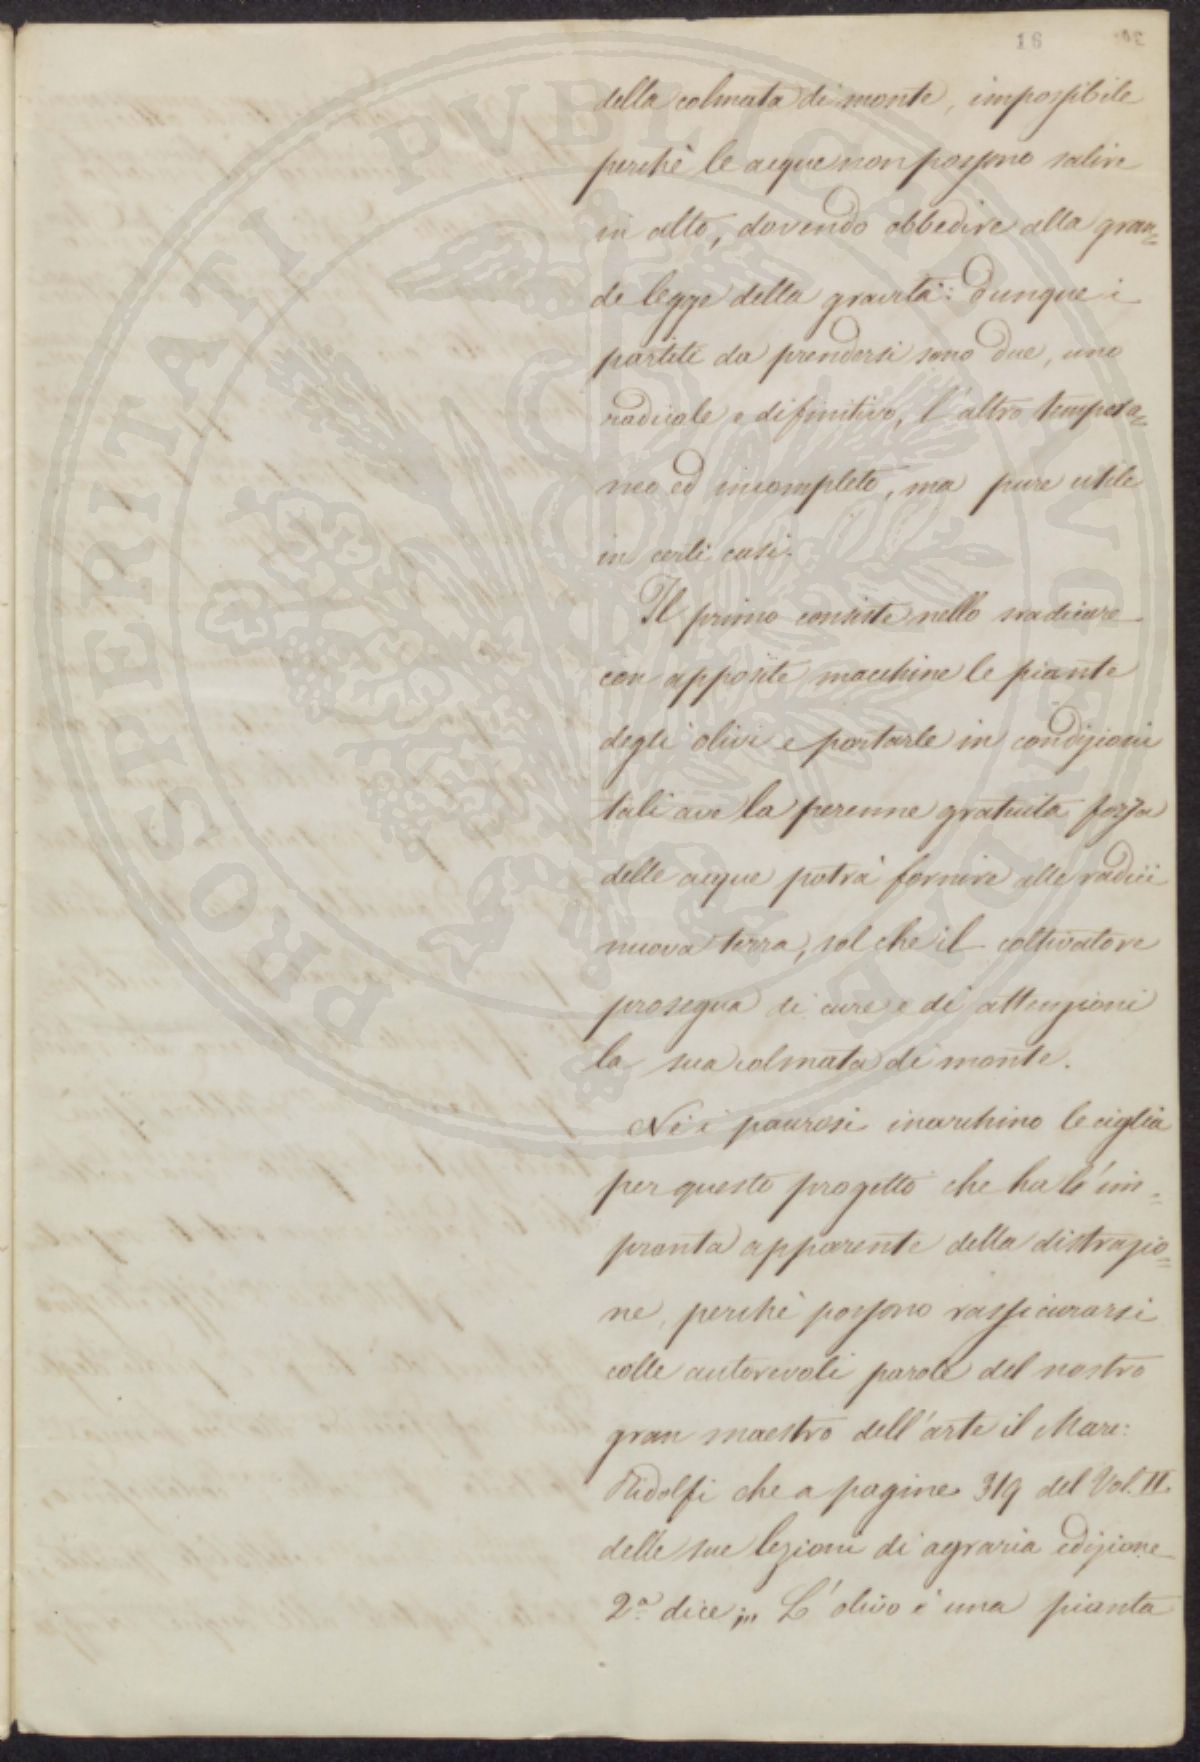 16
della colmata di monte, impossibile
perchè le acque non possono salire
in alto, dovendo obbedire alla gran=
de legge della gravità: dunque i
partiti da prendersi sono due, uno
radicale e difinitivo, l'altro tempora=
neo ed incompleto, ma pure utile
in certi casi.
Il primo consiste nello sradicare
con apposite macchine le piante
degli olivi e portarle in condizioni
tali ove la perenne gratuita forza
delle acque potrà fornire alle radici
nuova terra, sol che il coltivatore
prosegua di cure e di attenzioni
la sua colmata di monte.
Nè i paurosi inarchino le ciglia
per questo progetto che ha l'im=
pronta apparente della distrazio=
ne, perchè possono rassicurarsi
colle autorevoli parole del nostro
gran maestro dell'arte il Marc:
Ridolfi che a pagine 319 del Vol. II.
delle sue lezioni di agraria edizione
2ª dice; „ L'olivo è una pianta
PROSPERITATI PVBLICAE AVGENDAE